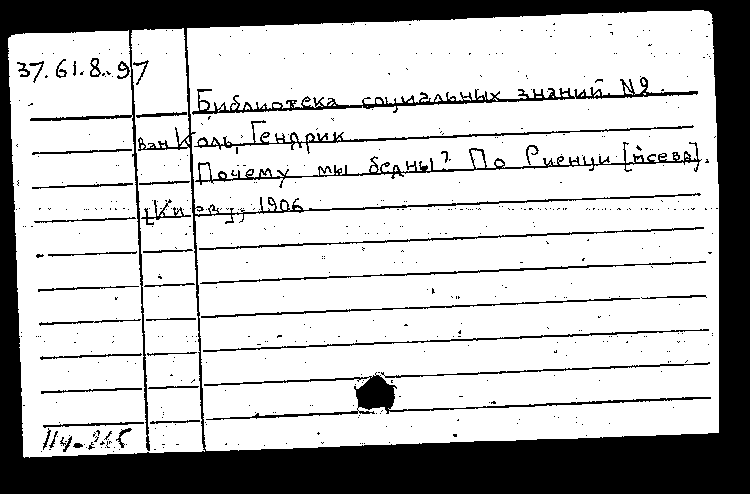 37.61.8.97
Библиотека социальных знаний. №2.
Ван Коль, Гендрик
Почему мы бедны? По Риенци [псевд].
1906.